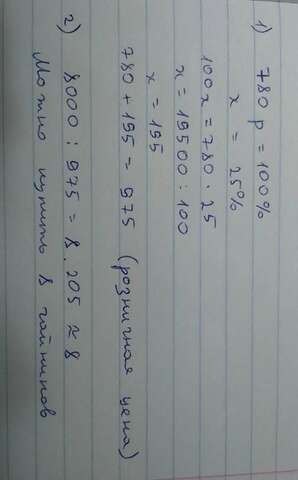 1) 780 р = 100%
x = 25%
100x = 780 · 25
x = 19500 : 100
x = 195
780 + 195 = 975 (розничная цена)
2) 8000 : 975 = 8.205 ≈ 8
Можно купить 8 чайников